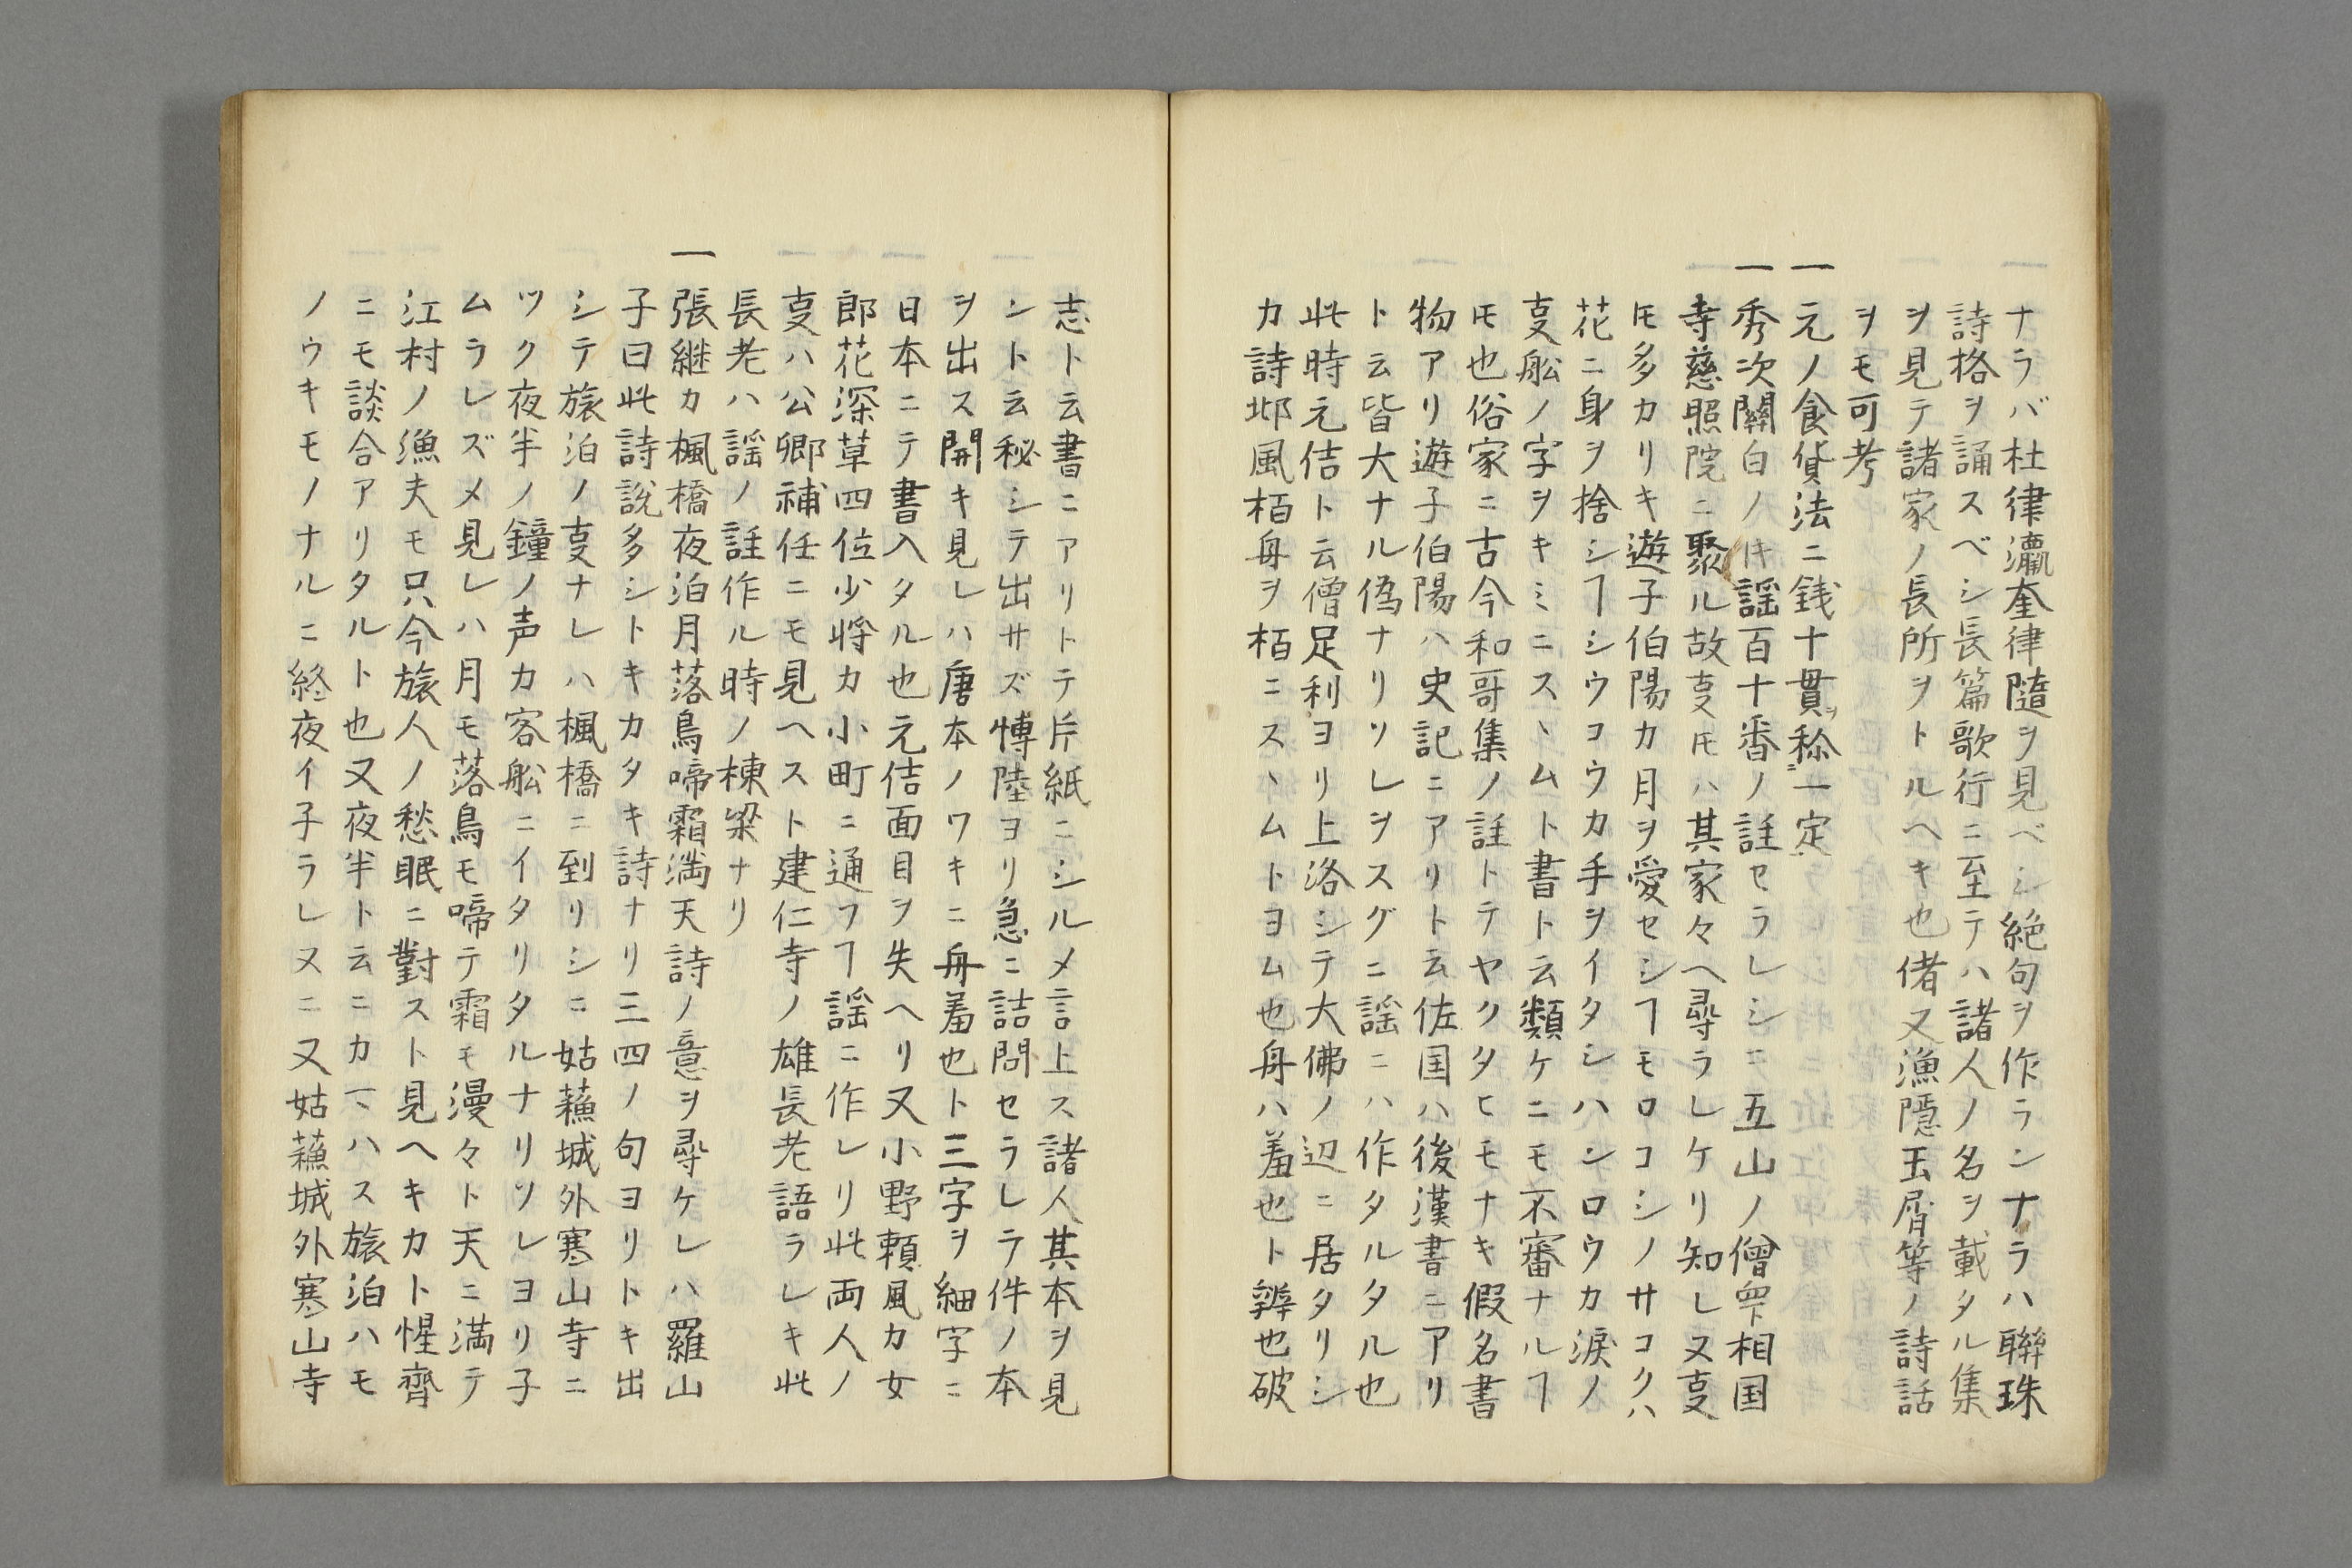 ナラバ杜律瀛奎律隨ヲ見ベシ絶句ヲ作ランナラハ聯珠
詩格ヲ誦スベシ長篇歌行ニ至テハ諸人ノ名ヲ載タル集
ヲ見テ諸家ノ長所ヲトルヘキ也偖又漁隱玉屑等ノ詩話
ヲモ可考
一元ノ食貨法ニ銭十貫ヲ称ニ一定
一秀次關白ノ時謡百十番ノ註セラレシニ五山ノ僧衆相国
寺慈照院ニ聚ル故叓𪜈ハ其家々ヘ尋ラレケリ知レヌ叓
𪜈多カリキ遊子伯陽カ月ヲ愛セシヿモロコシノサコクハ
花ニ身ヲ捨シヿシウコウカ手ヲイタシハシロウカ涙ノ
叓舩ノ字ヲキミニスヽムト書ト云類ケニモ不審ナルヿ
𪜈也俗家ニ古今和哥集ノ註トテヤクタヒモナキ假名書
物アリ遊子伯陽ハ史記ニアリト云佐国ハ後漢書ニアリ
ト云皆大ナル偽ナリソレヲスグニ謡ニハ作タルタル也
此時元佶ト云僧足利ヨリ上洛シテ大佛ノ辺ニ居タリシ
カ詩邶風栢舟ヲ栢ニスヽムトヨム也舟ハ羞也ト辨也破
志ト云書ニアリトテ片紙ニシルメ言上ス諸人其本ヲ見
シト云秘シテ出サズ愽陸ヨリ急ニ詰問セラレラ件ノ本
ヲ出ス開キ見レハ唐本ノワキニ舟羞也ト三字ヲ細字ニ
日本ニテ書入タル也元佶面目ヲ失ヘリ又小野頼風カ女
郎花深草四位少将カ小町ニ通フヿ謡ニ作レリ此両人ノ
叓ハ公卿補任ニモ見ヘスト建仁寺ノ雄長老語ラレキ此
長老ハ謡ノ註作ル時ノ棟梁ナリ
一張継カ楓橋夜泊月落烏啼霜満天詩ノ意ヲ尋ケレハ羅山
子曰此詩説多シトキカタキ詩ナリ三四ノ句ヨリトキ出
シテ旅泊ノ叓ナレハ楓橋ニ到リシニ姑蘓城外寒山寺ニ
ツク夜半ノ鐘ノ声カ客舩ニイタリタルナリソレヨリ子
ムラレズメ見レハ月モ落烏モ啼テ霜モ漫々ト天ニ満テ
江村ノ漁夫モ只今旅人ノ愁眠ニ對スト見ヘキカト惺齊
ニモ談合アリタルト也又夜半ト云ニカヽハス旅泊ハモ
ノウキモノナルニ終夜イ子ラレヌニ又姑蘓城外寒山寺